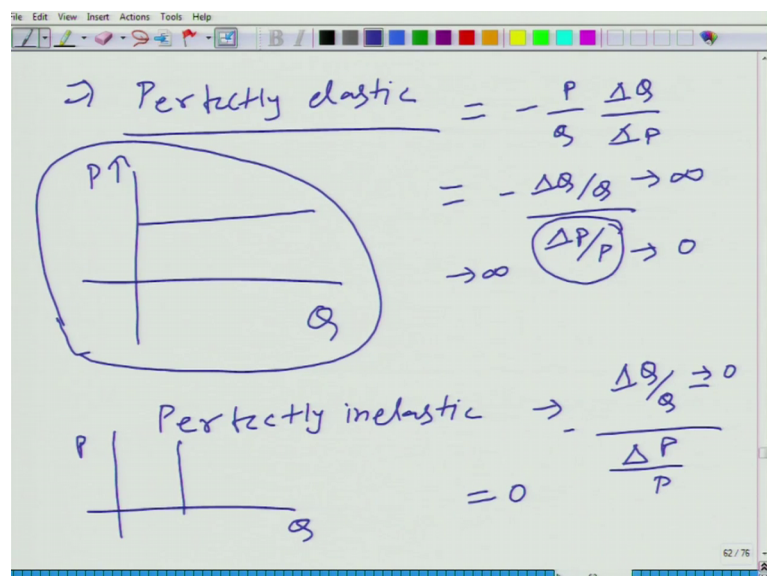 File Edit View Insert Actions Tools Help
B I
⇒ Perfectly elastic = - P/Q ΔQ/ΔP
P↑
= - ΔQ/Q → ∞
ΔP/P → 0
→ ∞
Q
Perfectly inelastic → - ΔQ/Q → 0
ΔP/P
P
= 0
Q
62 / 76